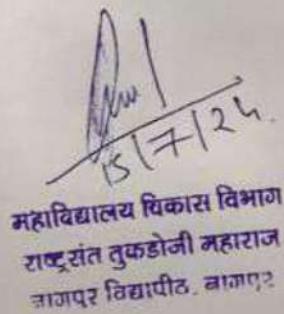 15/7/24.
महाविद्यालय विकास विभाग
राष्ट्रसंत तुकडोजी महाराज
नागपूर विद्यापीठ, नागपूर